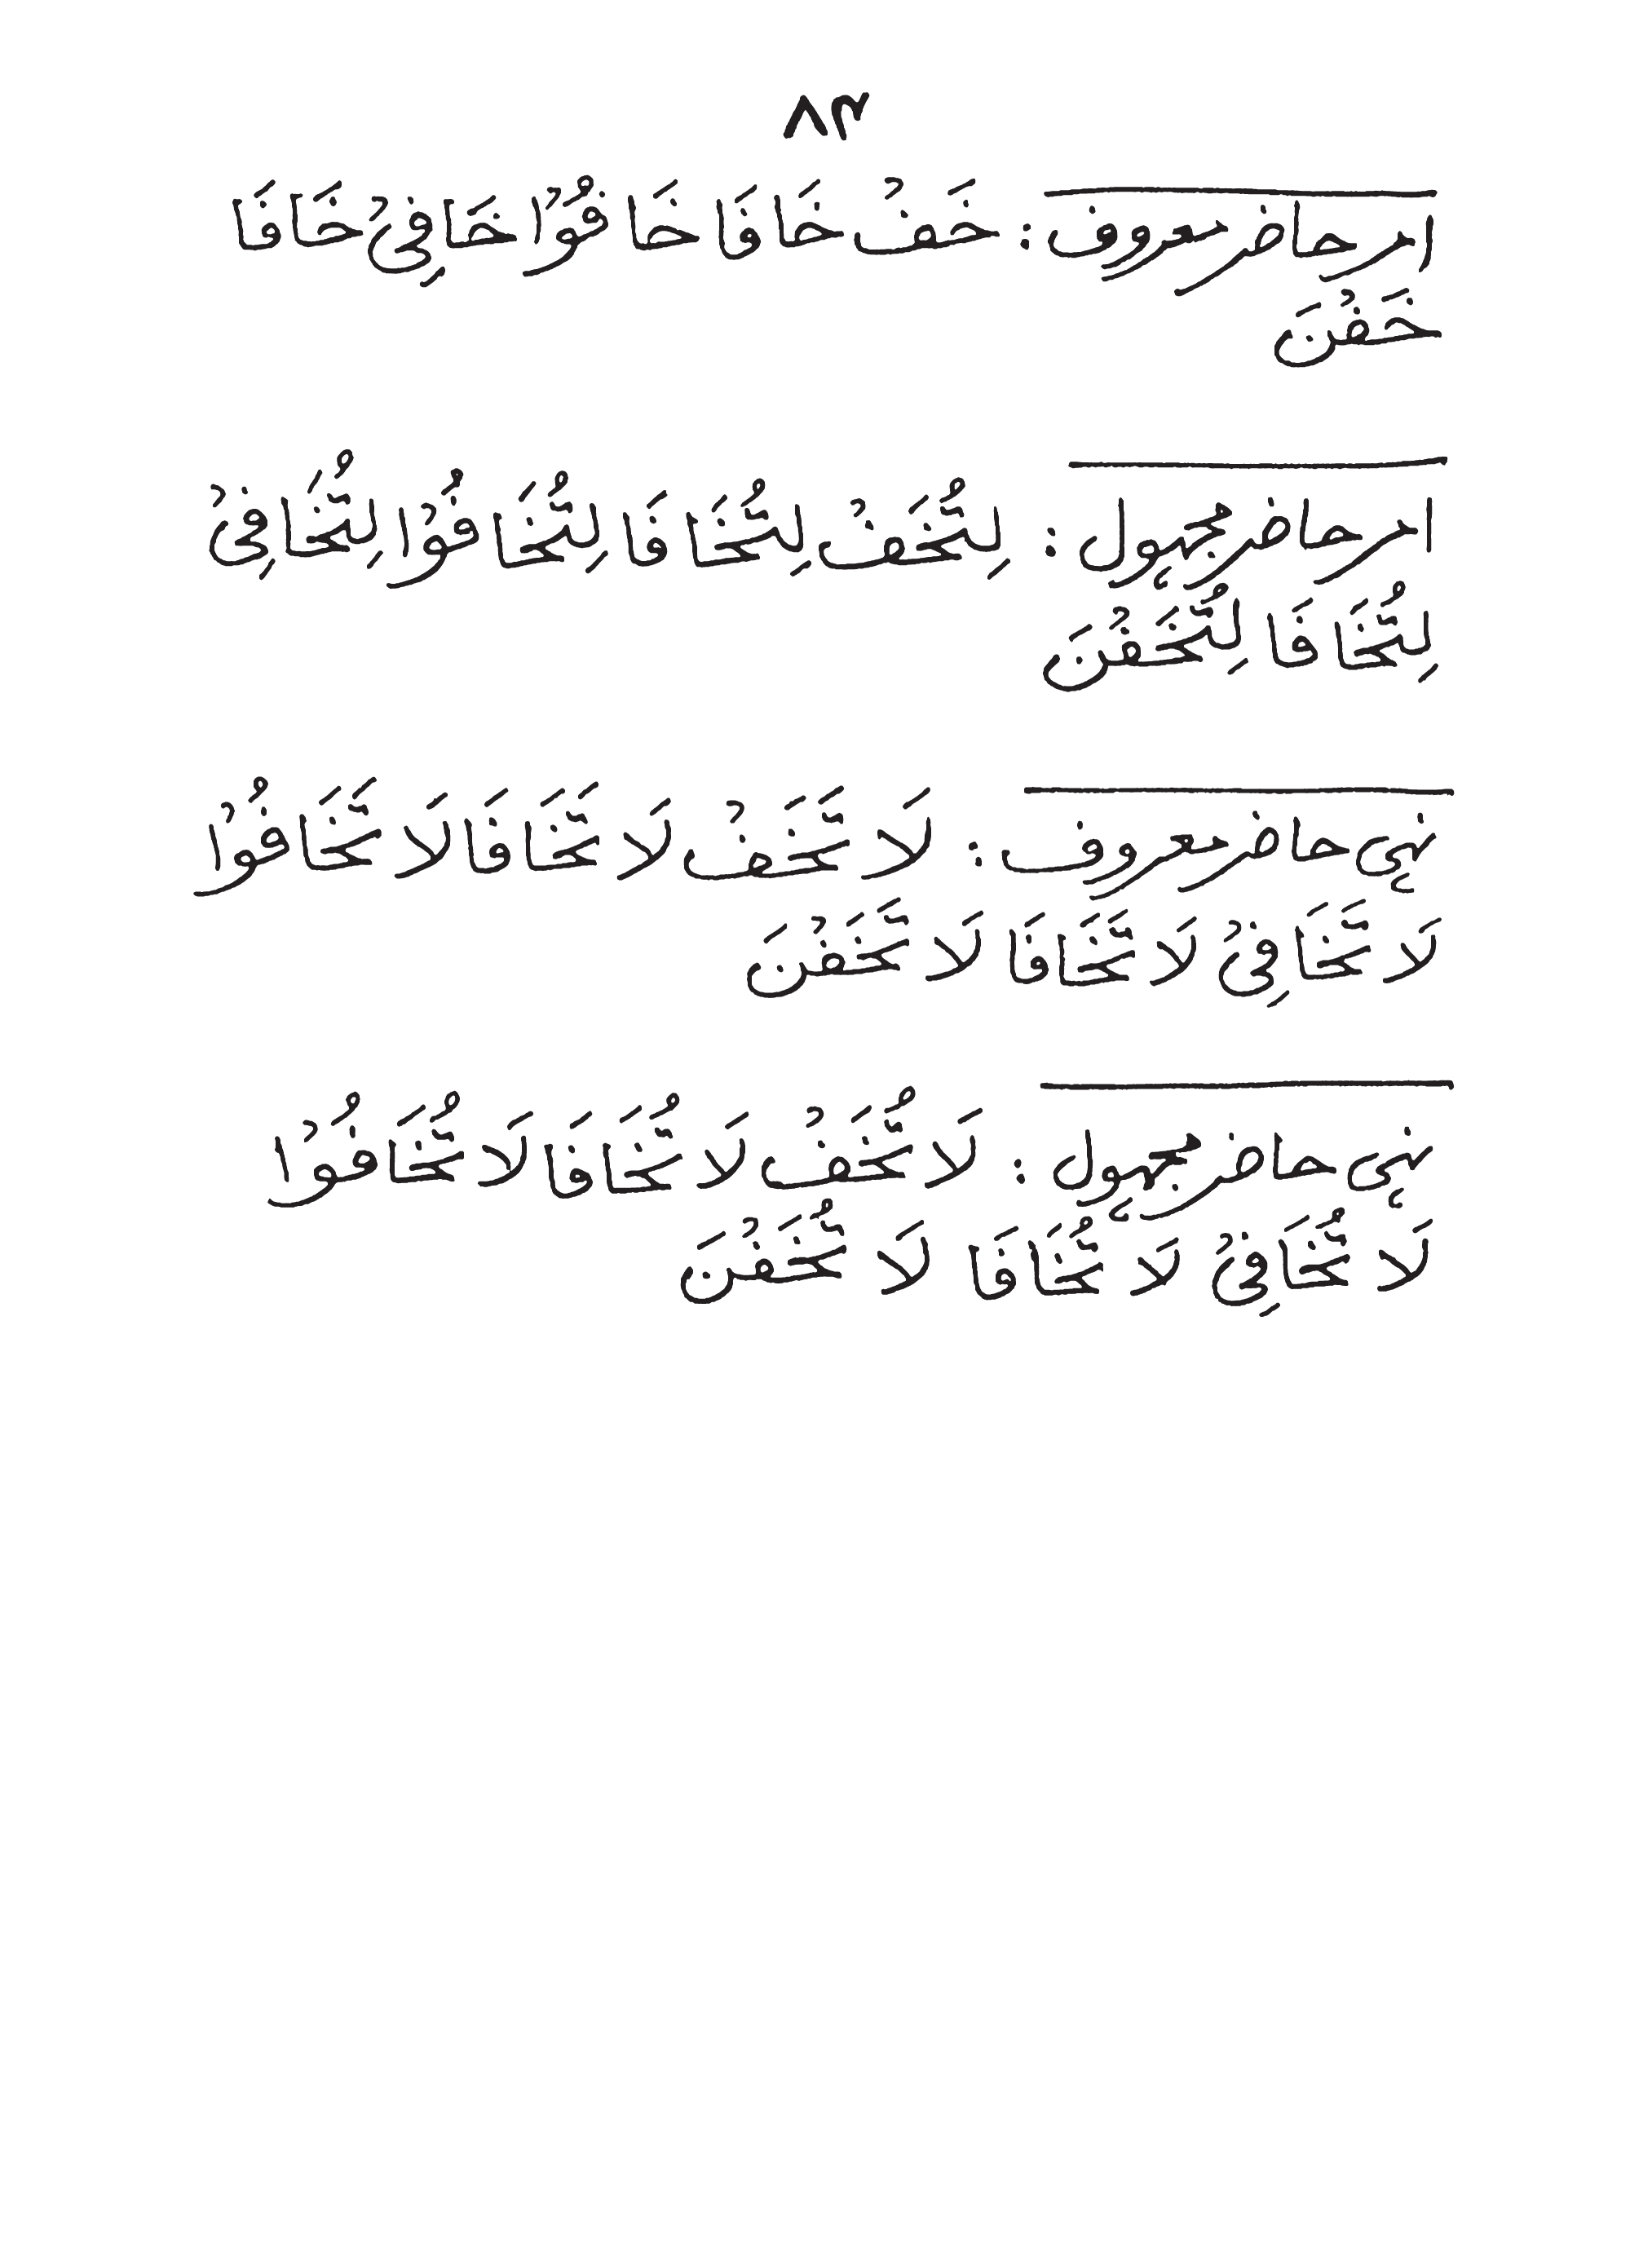 ۸۳
امر حاضر معروف : خَفْ خَافَا خَافُوْا خَافِيْ خَافَا
خَفْنَ
امر حاضر مجهول : لِتُخَفْ لِتُخَافَا لِتُخَافُوْا لِتُخَافِيْ
لِتُخَافَا لِتُخَفْنَ
نهى حاضر معروف : لَا تَخَفْ لَا تَخَافَا لَا تَخَافُوْا
لَا تَخَافِيْ لَا تَخَافَا لَا تَخَفْنَ
نهى حاضر مجهول : لَا تُخَفْ لَا تُخَافَا لَا تُخَافُوْا
لَا تُخَافِيْ لَا تُخَافَا لَا تُخَفْنَ